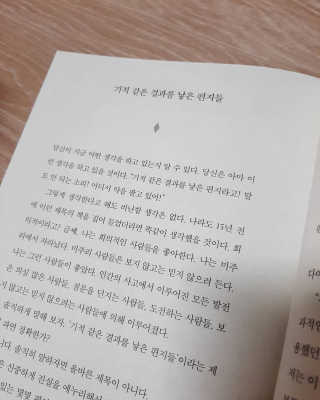 기적 같은 결과를 낳은 편지들
당신이 지금 어떤 생각을 하고 있는지 알 수 있다. 당신은 아마 이
런 생각을 하고 있을 것이다. "기적 같은 결과를 낳은 편지라고! 말
도 안 되는 소리! 어디서 약을 팔고 있어!"
그렇게 생각한다고 해도 비난할 생각은 없다. 나라도 15년 전
에 이런 제목의 책을 집어 들었더라면 똑같이 생각했을 것이다. 회
의적이라고? 글쎄, 나는 회의적인 사람들을 좋아한다. 나는 미주
리에서 자라났다. 미주리 사람들은 보지 않고는 믿지 않으려 든다.
나는 그런 사람들이 좋았다. 인간의 사고에서 이루어진 모든 발전
은 의심 많은 사람들, 질문을 던지는 사람들, 도전하는 사람들, 보
지 않고는 믿지 않으려는 사람들에 의해 이루어졌다.
솔직하게 말해 보자. '기적 같은 결과를 낳은 편지들'이라는 제
과연 정확한가?
니다. 솔직히 말하자면 올바른 제목이 아니다.
은 신중하게 진실을 에누리해서
있는 몇몇
다
과적인
용했던
저는 이